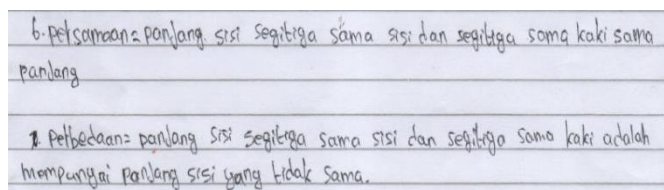 6. persamaan = panjang sisi segitiga sama sisi dan segitiga sama kaki sama
panjang
1. Perbedaan = panjang sisi segitiga sama sisi dan segitiga sama kaki adalah
mempunyai panjang sisi yang tidak sama.